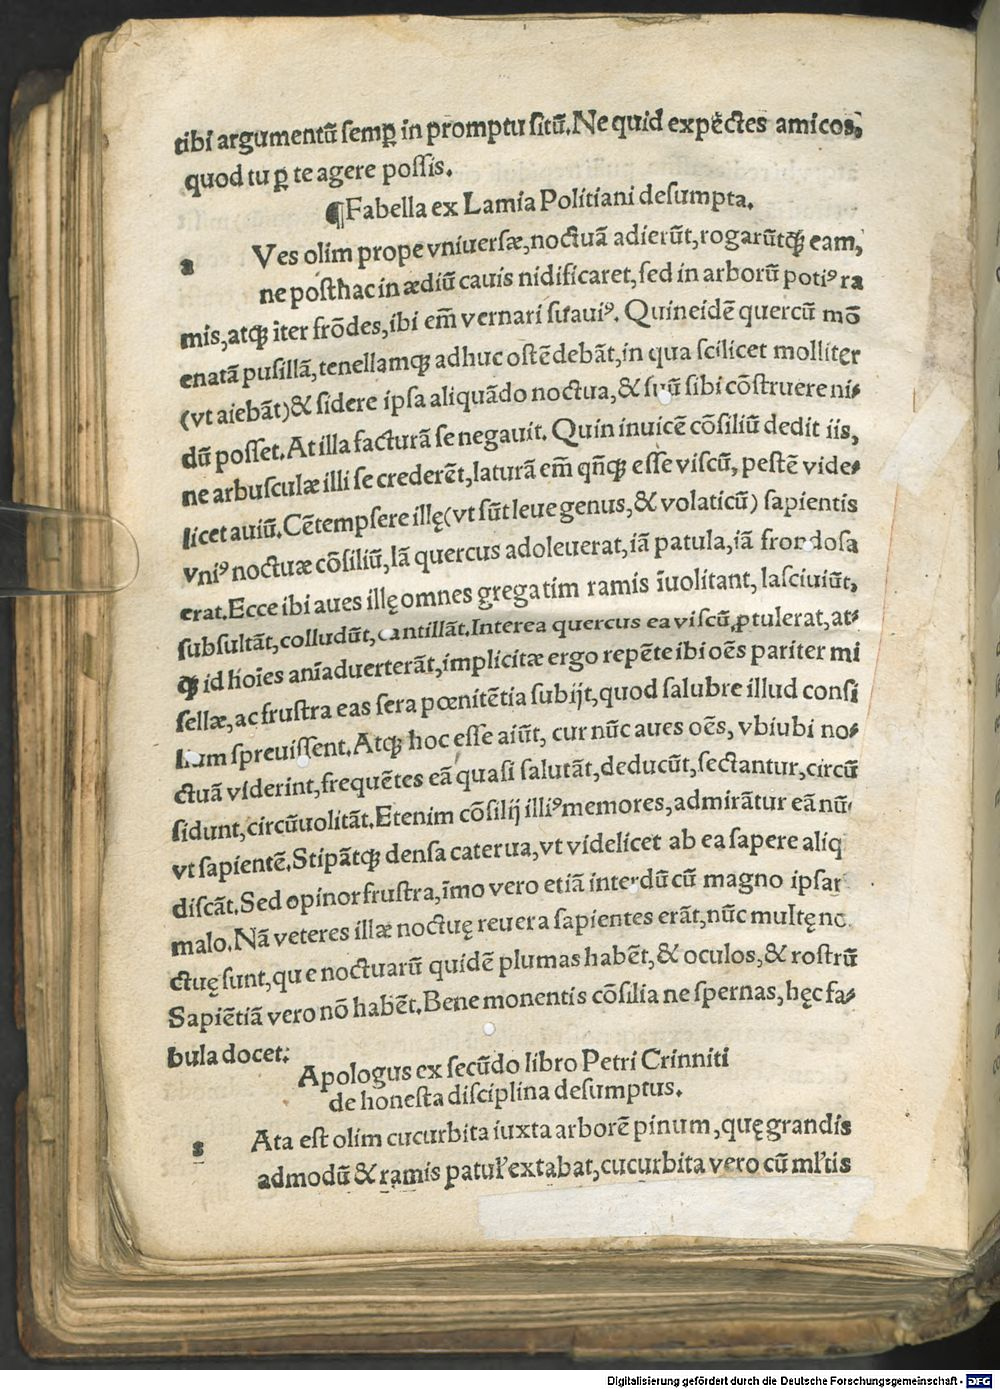 tibi argumentū semꝑ in promptu sitū. Ne quid expectes amicos,
quod tu ꝑ te agere possis.
¶Fabella ex Lamia Politiani desumpta.
a Ves olim prope vniuersæ, noctuā adierūt, rogarūtqꝫ eam,
ne posthac in ædiū cauis nidificaret, sed in arborū potiꝰ ra
mis, atqꝫ iter frōdes, ibi em̄ vernari suauiꝰ. Quineidē quercū mō
enatā pusillā, tenellamqꝫ adhuc ostēdebāt, in qua scilicet molliter
(vt aiebāt) & sidere ipsa aliquādo noctua, & suū sibi cōstruere ni-
dū posset. At illa facturā se negauit. Quin inuicē cōsiliū dedit iis,
ne arbusculæ illi se crederēt, laturā em̄ qn̄qꝫ esse viscū, pestē vide-
licet auiū. Cētempsere illę (vt sūt leue genus, & volaticū) sapientis
vniꝰ noctuæ cōsiliū, Iā quercus adoleuerat, iā patula, iā frondosa
erat. Ecce ibi aues illę omnes gregatim ramis īuolitant, lasciuiūt,
subsultāt, colludūt, cantillāt. Interea quercus ea viscū ꝓtulerat, at-
qꝫ id hoīes anīaduerterāt, implicitæ ergo repēte ibi oēs pariter mi
sellæ, ac frustra eas sera pœnitētia subijt, quod salubre illud consi
lium spreuissent. Atqꝫ hoc esse aiūt, cur nūc aues oēs, vbiubi no-
ctuā viderint, frequētes eā quasi salutāt, deducūt, sectantur, circū
sidunt, circūuolitāt. Etenim cōsilij illiꝰ memores, admirātur eā nū
vt sapientē. Stipātqꝫ densa caterua, vt videlicet ab ea sapere aliq
discāt. Sed opinor frustra, īmo vero etiā interdū cū magno ipsar
malo. Nā veteres illæ noctuę reuera sapientes erāt, nūc multę no
ctuę sunt, que noctuarū quidē plumas habēt, & oculos, & rostrū
Sapiētiā vero nō habēt. Bene monentis cōsilia ne spernas, hęc fa-
bula docet.
Apologus ex secūdo libro Petri Crinniti
de honesta disciplina desumptus.
s Ata est olim cucurbita iuxta arborē pinum, quę grandis
admodū & ramis patul' extabat, cucurbita vero cū ml'tis
Digitalisierung gefördert durch die Deutsche Forschungsgemeinschaft - DFG